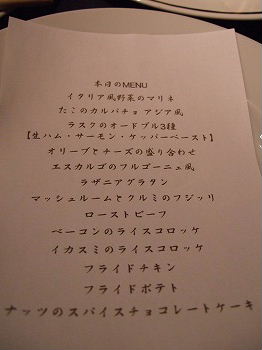 本日のMENU
イタリア風野菜のマリネ
たこのカルパチョ アジア風
ラスクのオードブル3種
【生ハム・サーモン・ケッパーペースト】
オリーブとチーズの盛り合わせ
エスカルゴのブルゴーニュ風
ラザニアグラタン
マッシュルームとクルミのフジッリ
ローストビーフ
ベーコンのライスコロッケ
イカスミのライスコロッケ
フライドチキン
フライドポテト
ナッツのスパイスチョコレートケーキ